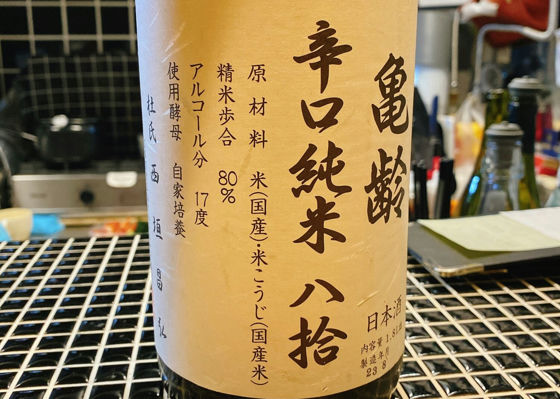 亀齢
辛口純米 八拾
原材料 米(国産)・米こうじ(国産米)
精米歩合 80%
アルコール分 17度
使用酵母 自家培養
杜氏 西垣昌弘
日本酒
内容量 1.8L
製造年月
23 8